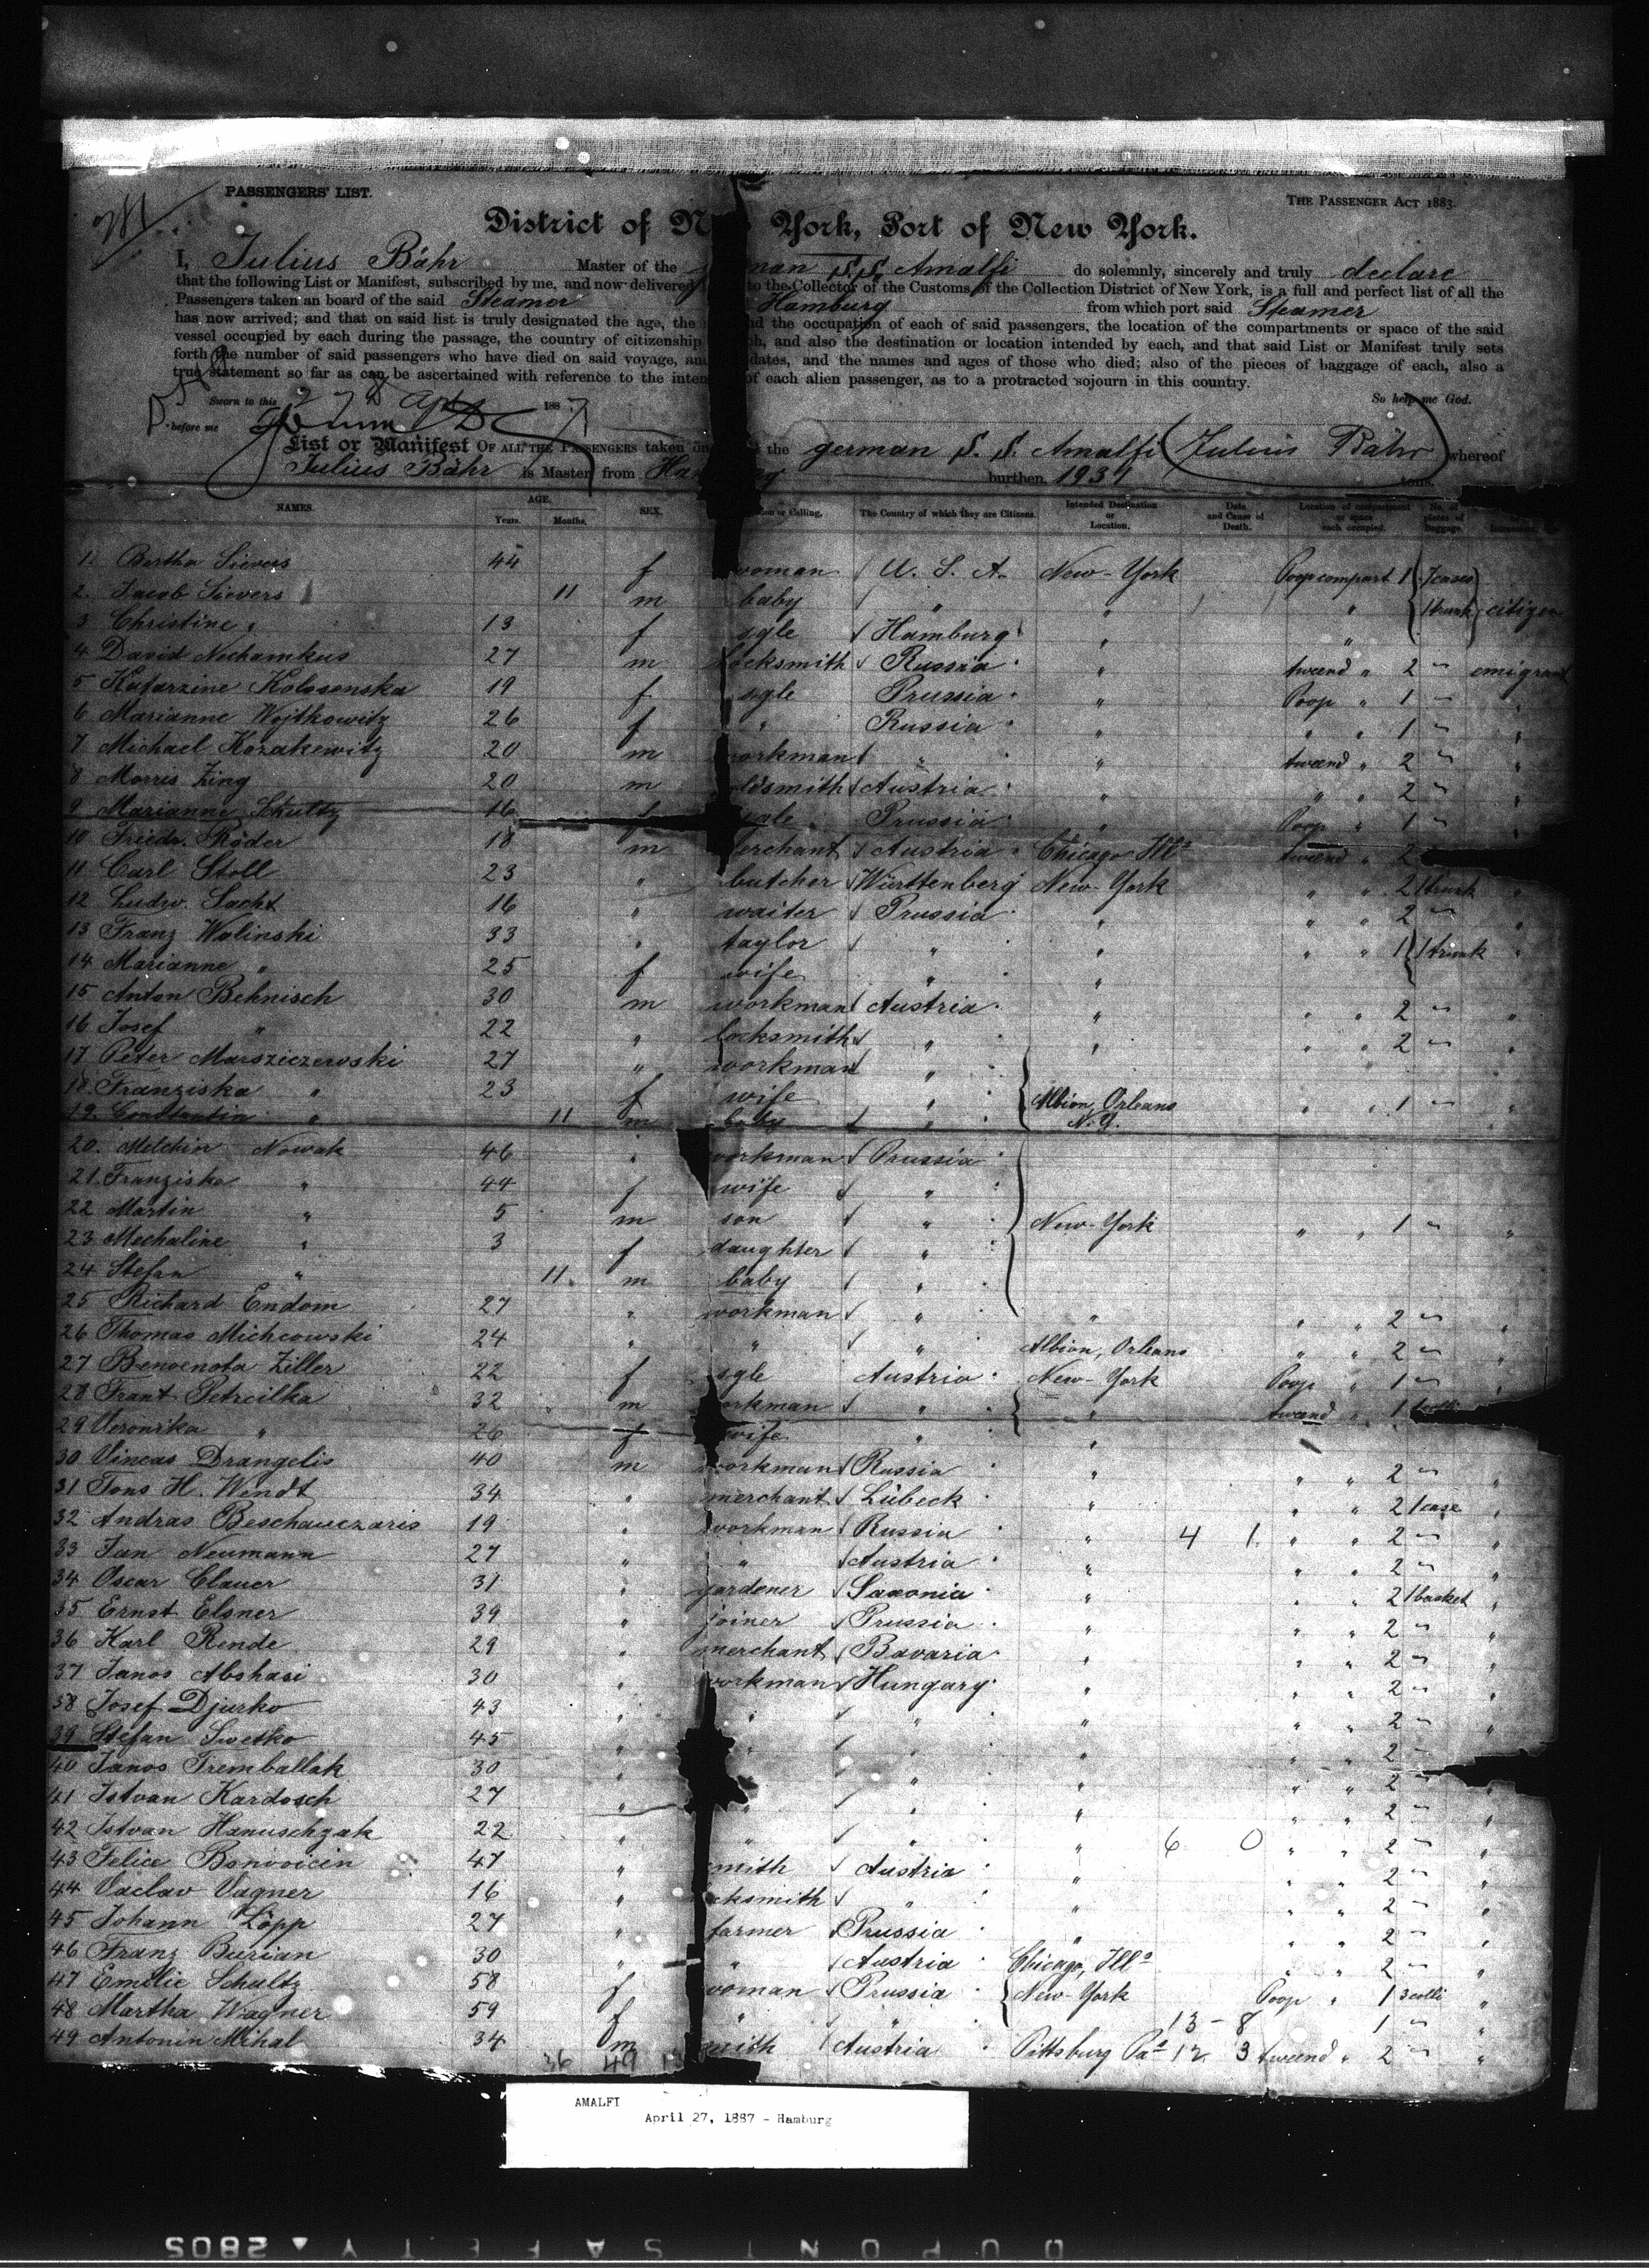 PASSENGERS' LIST.
THE PASSENGER ACT 1883.
District of N York, Port of New York.
I, Julius Bähr Master of the man S.S. Amalfi do solemnly, sincerely and truly declare
that the following List or Manifest, subscribed by me, and now delivered to the Collector of the Customs of the Collection District of New York, is a full and perfect list of all the
Passengers taken an board of the said Steamer Hamburg from which port said Steamer
has now arrived; and that on said list is truly designated the age, the nd the occupation of each of said passengers, the location of the compartments or space of the said
vessel occupied by each during the passage, the country of citizenship h, and also the destination or location intended by each, and that said List or Manifest truly sets
forth the number of said passengers who have died on said voyage, an dates, and the names and ages of those who died; also of the pieces of baggage of each, also a
true statement so far as can be ascertained with reference to the inten of each alien passenger, as to a protracted sojourn in this country.
Sworn to this 27 Apr 1887 So help me God.
before me
List or Manifest OF ALL THE PASSENGERS taken on the german S. S. Amalfi (Julius Bähr) whereof
Julius Bähr is Master, from Ha g burthen 1939 tons.
NAMES. AGE. Years. Months. SEX. ion or Calling. The Country of which they are Citizens. Intended Destination or Location. Date and Cause of Death. Location of compartment or space each occupied. No. of pieces of Baggage.
1. Bertha Sievers 44 f woman U. S. A. New-York Poop compart 1 7 cases
2. Jacob Sievers 11 m baby " " " 1 trunk citizen
3 Christine " 13 f sgle Hamburg " "
4 David Nochamkus 27 m locksmith Russia " tweend " 2 " emigrant
5 Katarzine Kolosenska 19 f sgle Prussia " Poop " 1 " "
6 Marianne Wojtkowitz 26 f " Russia " " " 1 " "
7 Michael Kozakewitz 20 m workman " " tweend " 2 " "
8 Morris Zing 20 m oldsmith Austria " " " 2 " "
9 Marianne Schultz 16 f sgle Prussia " Poop " 1 " "
10 Friedr. Röder 18 m erchant Austria Chicago Ills tweend " 2
11 Carl Stoll 23 " butcher Württenberg New-York " " 2 1 trunk "
12 Ludw. Sacht 16 " waiter Prussia " " " 2 " "
13 Franz Walinski 33 " taylor " " " " 1 1 trunk "
14 Marianne " 25 f wife " "
15 Anton Behnisch 30 m workman Austria " " " 2 " "
16 Josef " 22 " locksmith " " " " 2 " "
17 Peter Marsziczewski 27 " workman "
18 Franziska " 23 f wife " Albion, Orleans " " 1 " "
19. Constantin " 11 m baby " N.Y.
20. Melchin Nowak 46 " workman Prussia
21 Franziska " 44 f wife "
22 Martin " 5 m son " New-York " " 1 " "
23 Mechaline " 3 f daughter "
24 Stefan " 11 m baby "
25 Richard Endom 27 " workman " " " " 2 " "
26 Thomas Michcowski 24 " " " Albion, Orleans " " 2 " "
27 Benvenota Ziller 22 f sgle Austria New-York Poop " 1 " "
28 Frant Petrcilka 32 m orkman " " tweend " 1
29 Veronika " 26 f wife " "
30 Vincas Drangelis 40 m workman Russia " " " 2 " "
31 Tons H. Wendt 34 " merchant Lübeck " " " 2 1 case "
32 Andras Beschawczaris 19 " workman Russia " 4 1 " " 2 " "
33 Jan Neumann 27 " " Austria " " " 2 " "
34 Oscar Clauer 31 " gardener Saxonia " " " 2 1 basket "
35 Ernst Elsner 39 " joiner Prussia " " " 2 " "
36 Karl Rende 29 " merchant Bavaria " " " 2 " "
37 Janos Abshasi 30 " workman Hungary " " " 2 " "
38 Josef Djurko 43 " " " " " " 2 " "
39 Stefan Swetko 45 " " " " " " 2 " "
40 Janos Tremballak 30 " " " " " " 2 " "
41 Istvan Kardosch 27 " " " " " " 2 " "
42 Istvan Hanuschzak 22 " " " " 6 0 " " 2 " "
43 Felice Bonvoicin 47 " smith Austria " " " 2 " "
44 Vaclav Vagner 16 " cksmith " " " " 2 " "
45 Johann Löpp 27 " farmer Prussia " " " 2 " "
46 Franz Burian 30 " " Austria Chicago, Ills " " 2 " "
47 Emilie Schultz 58 f woman Prussia New-York Poop " 1 3 colli "
48 Martha Wagner 59 f " " 13 - 8 1 " "
49 Antonin Mihal 34 m smith Austria Pittsburg Pa 12 3 tweend " 2 " "
36 49 13
AMALFI
April 27, 1887 - Hamburg
DUPONT SAFETY ▲ 2805